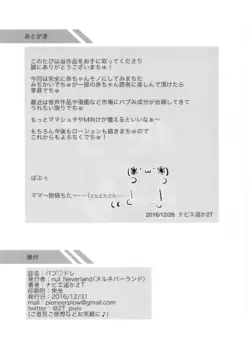 あとがき
このたびは当作品をお手に取ってくださり
誠にありがとうございまちゅ！
今回は完全に赤ちゃんモノにしてみまちた
みぢかいでちゅが一部の赤ちゃん読者に楽しんで頂けたら
幸甚でちゅ
最近は音声作品や漫画など市場にバブみ成分が台頭してきて
うれちい限りでちゅ
もっとママショタやM向けが増えるといいなぁ～
もちろん今後もローションも描きまちゅので
これからもよろちくでちゅ！
ばぶぅ
ママ～脱稿ちた～・・・(どたどたどた・・・
2016/12/26 ナビエ遥か2T
奥付
誌名：バブ♡ドレ
発行者：nul_Neverland（ヌルネバーランド）
著者：ナビエ遥か2T
印刷所：栄光
発行日：2016/12/31
mail：pioneerplow@gmail.com
twitter：@2T_pixiv
(ご意見ご感想などお気軽に♪)